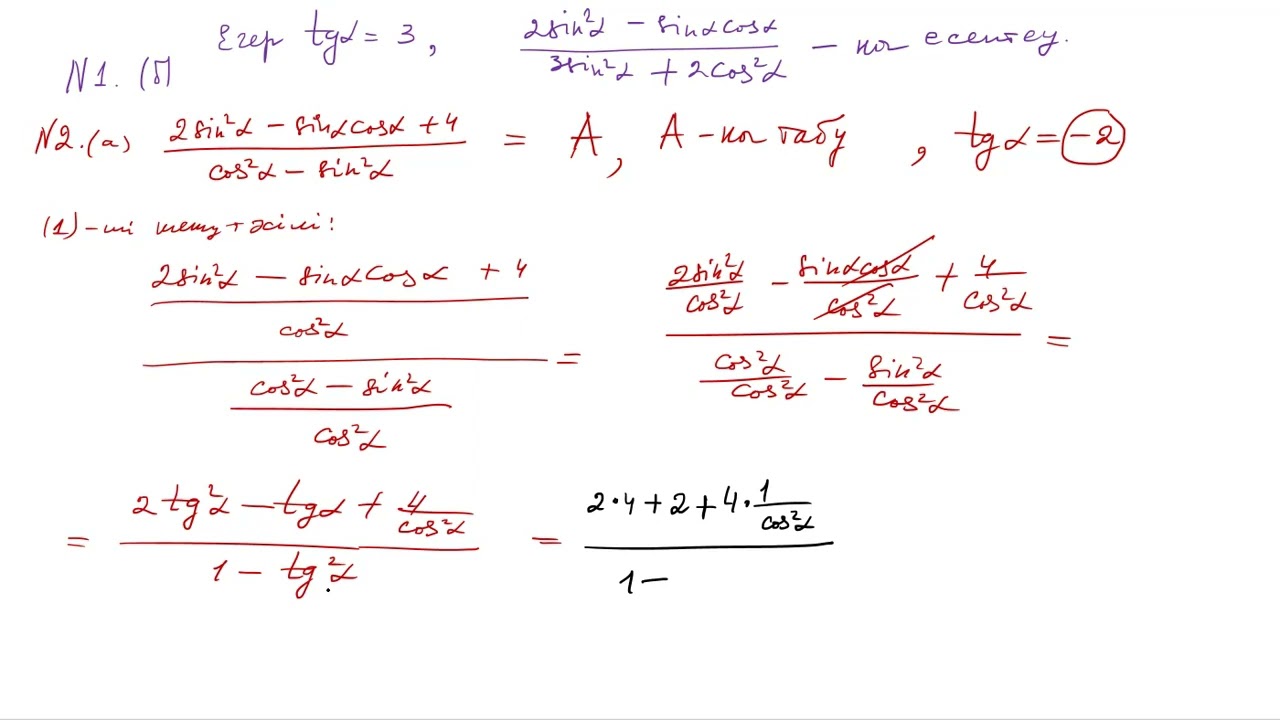 Егер tgα = 3, (2sin²α − sinαcosα)/(3sin²α + 2cos²α) − ны есептеу.
N1. (б)
N2.(а) (2sin²α − sinαcosα + 4)/(cos²α − sin²α) = A, A − ны табу, tgα = −2
(1) − ші шешу тәсілі:
((2sin²α − sinαcosα + 4)/cos²α)/((cos²α − sin²α)/cos²α) = (2sin²α/cos²α − sinαcosα/cos²α + 4/cos²α)/(cos²α/cos²α − sin²α/cos²α) =
= (2tg²α − tgα + 4/cos²α)/(1 − tg²α) = (2·4 + 2 + 4·1/cos²α)/(1 −